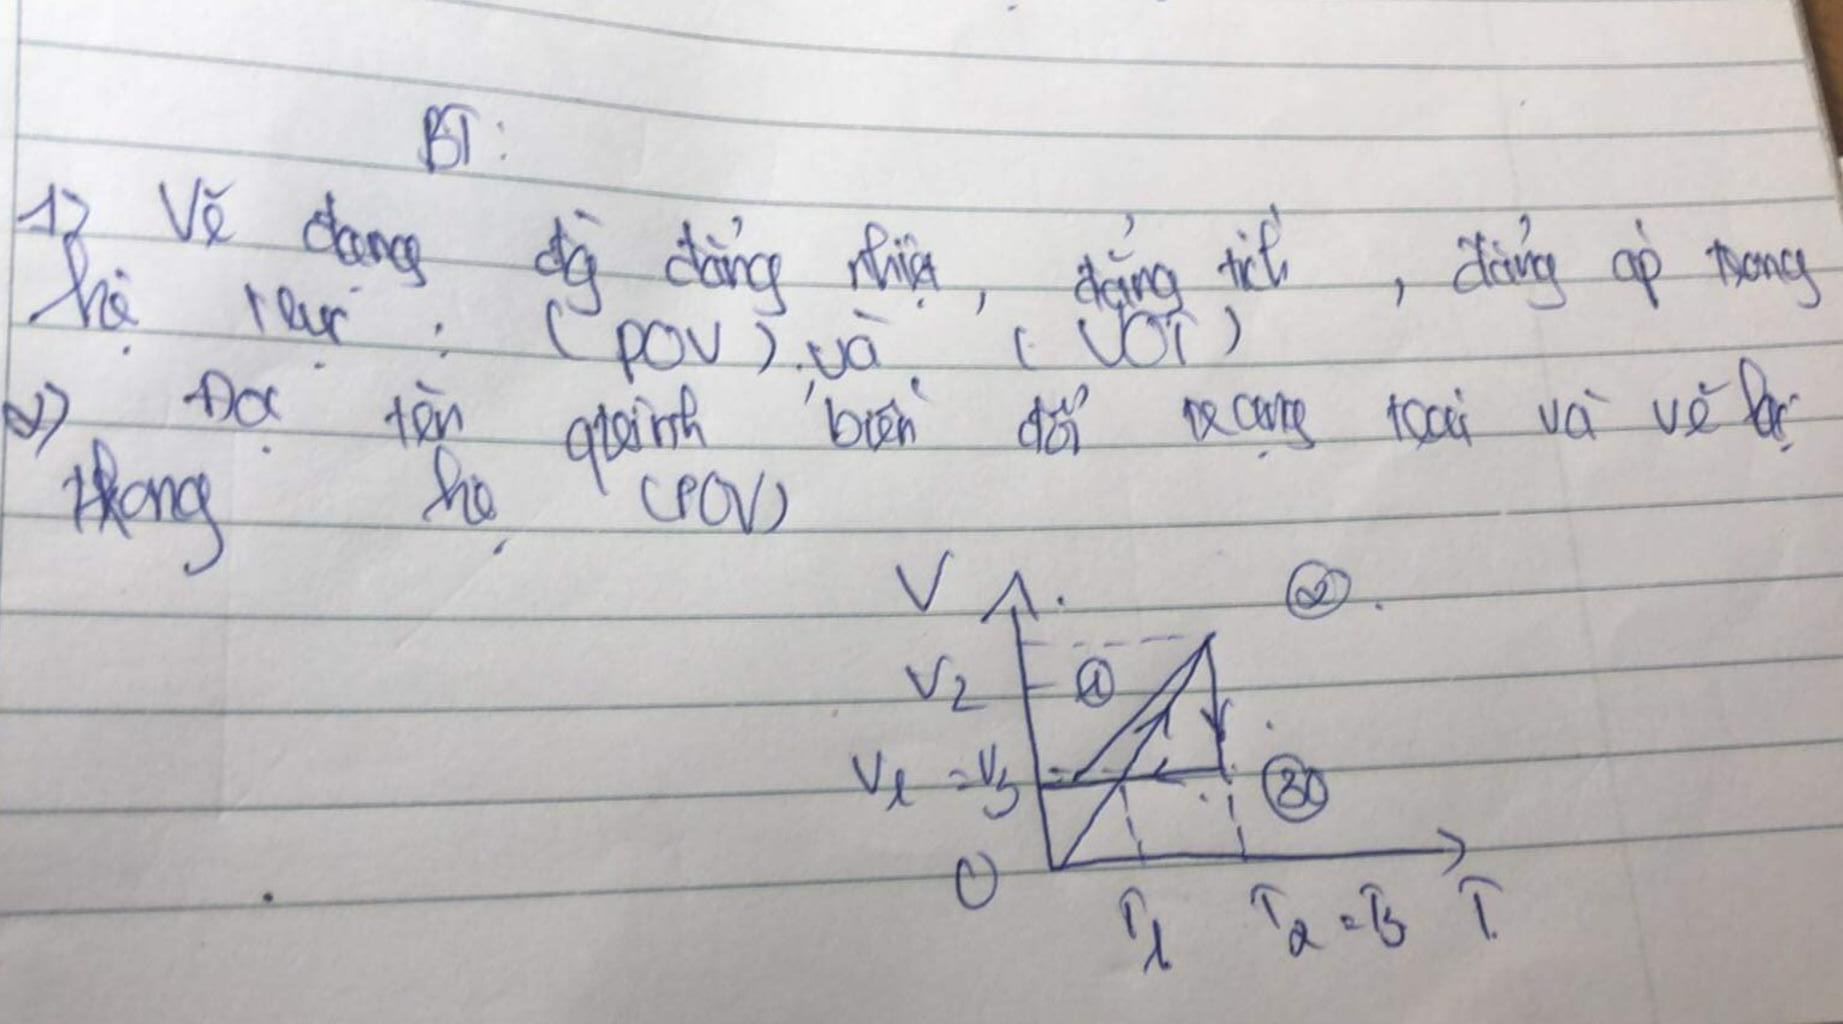 BT:
1) Vẽ dạng đg đẳng nhiệt, đẳng tích, đẳng áp trong
hệ trục : (POV) và (VOT)
2) Đọc tên qtrình biến đổi trạng thái và vẽ lại
trong hệ (POV)
V
②
V2 ①
V1 = V3 ③
O
T1 T2 = T3 T